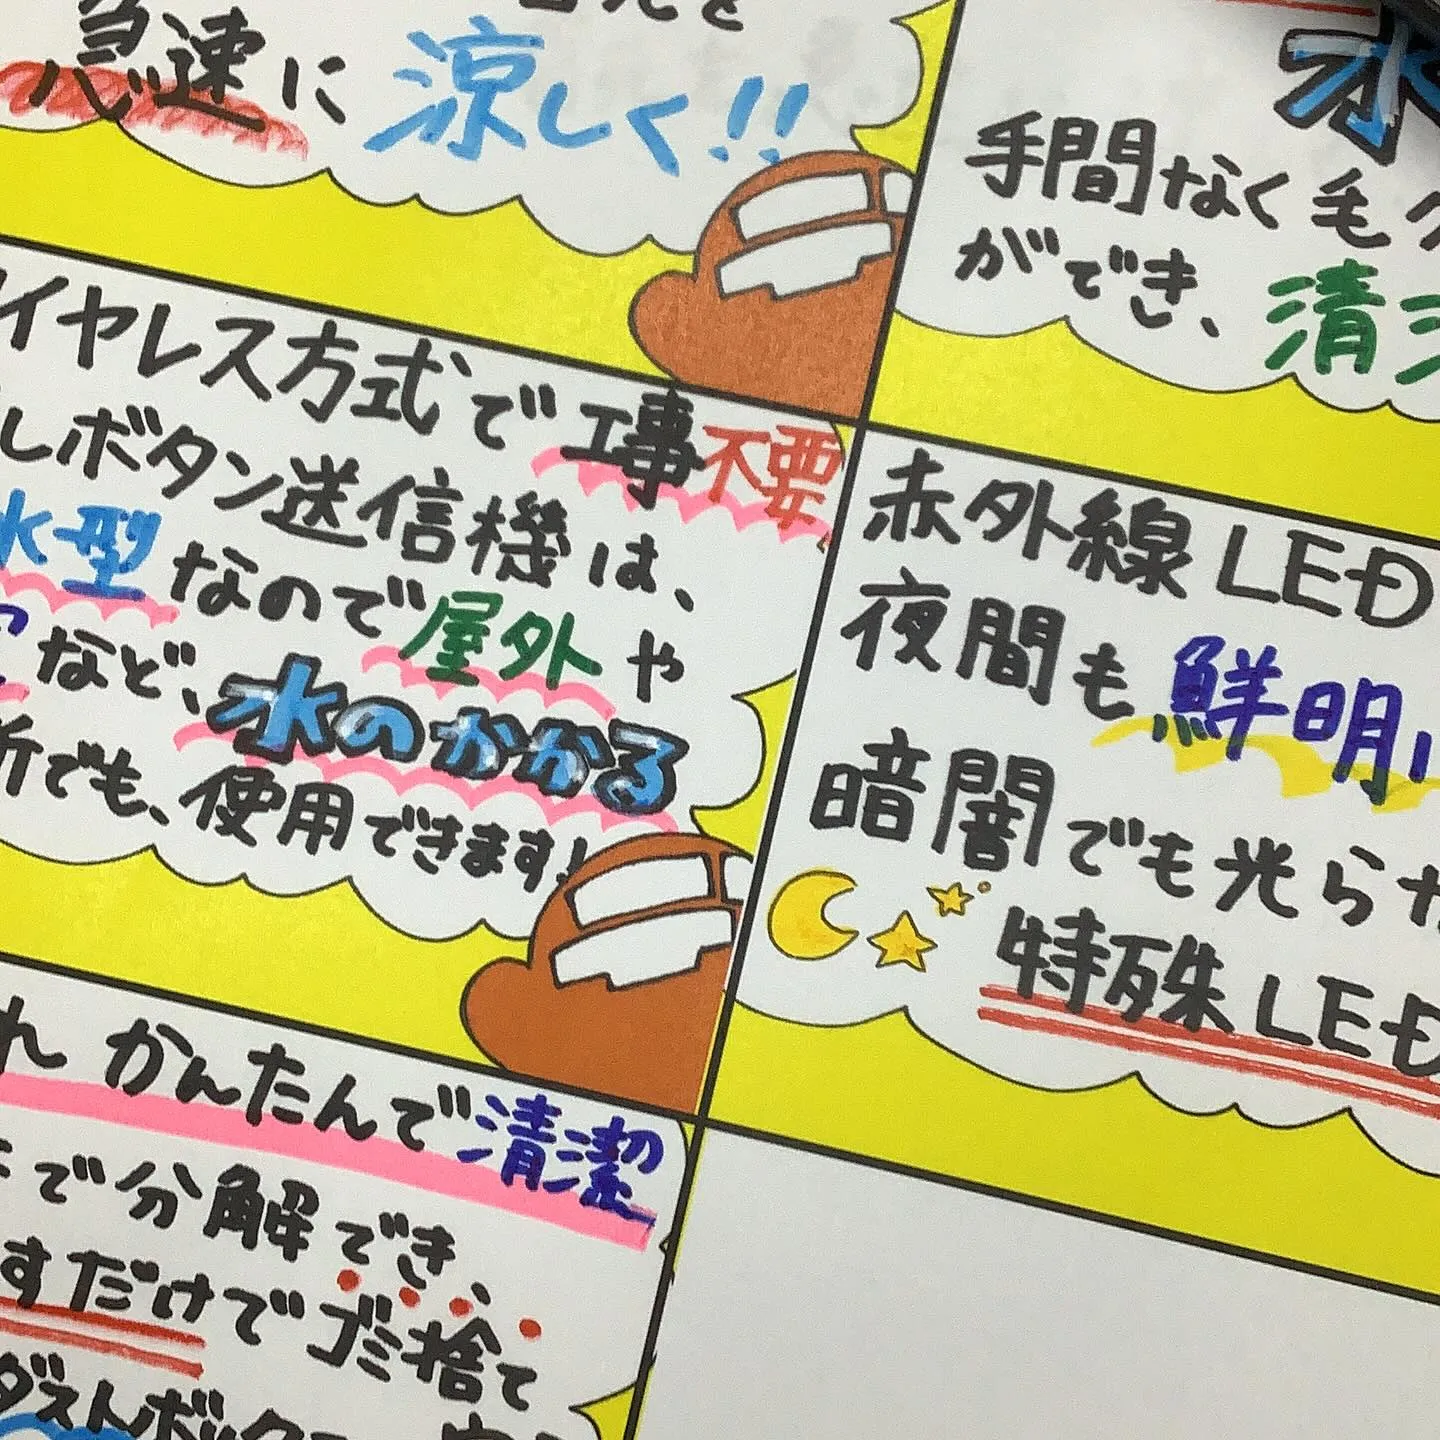 急速に涼しく!!
手間なく毛
ができ、清
イヤレス方式で工事不要
しボタン送信機は、
水型なので屋外や
など、水のかかる
所でも、使用できます!
赤外線LED
夜間も鮮明
暗闇でも光ら
特殊LED
れ かんたんで清潔
で分解でき、
すだけでゴミ捨て
ダストボック